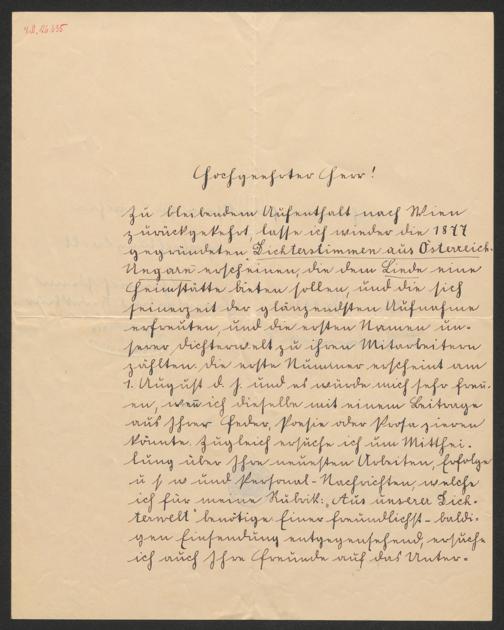 Hochgeehrter Herr!
Zu bleibendem Aufenthalt nach Wien
zurückgekehrt, lasse ich wieder die 1877
gegründeten Dichterstimmen aus Österreich-
Ungarn erscheinen, die dem Liede eine
Heimstätte bieten sollen, und die sich
seinerzeit der glänzendsten Aufnahme
erfreuten, und die ersten Namen un-
serer Dichterwelt zu ihren Mitarbeitern
zählten. die erste Nummer erscheint am
1. August d. J. und es würde mich sehr freu-
en, wen̄ ich dieselbe mit einem Beitrage
aus Ihrer Feder, Poesie oder Prosa zieren
könnte. Zugleich ersuche ich um Mitthei-
lung über Ihre neuesten Arbeiten, Erfolge
u s w und Personal-Nachrichten, welche
ich für meine Rubrik: „Aus unserer Dich-
terwelt" benötige Einer freundlichst-baldi-
gen Einsendung entgegensehend, ersuche
ich auch Ihre Freunde auf das Unter-